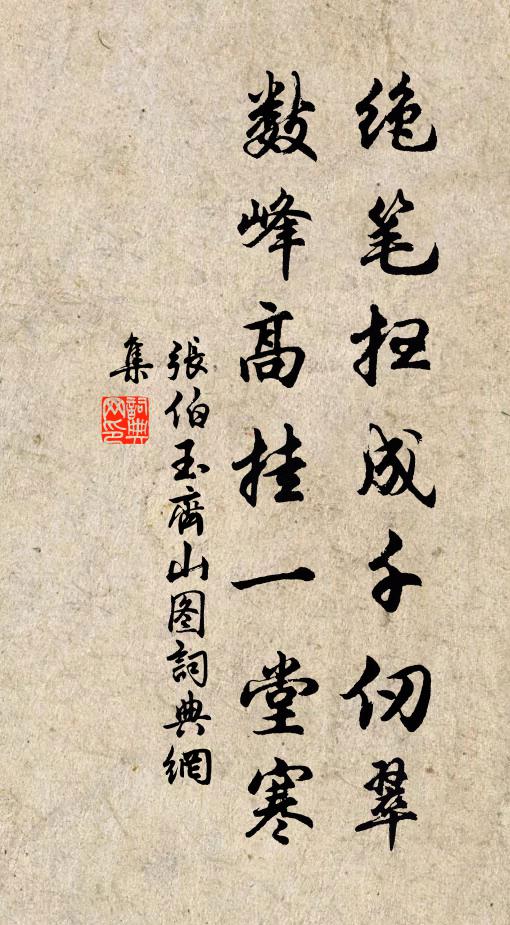 绝笔扫成千仞翠
数峰高挂一堂寒
張伯玉齊山图詞典網
集
詞典网印